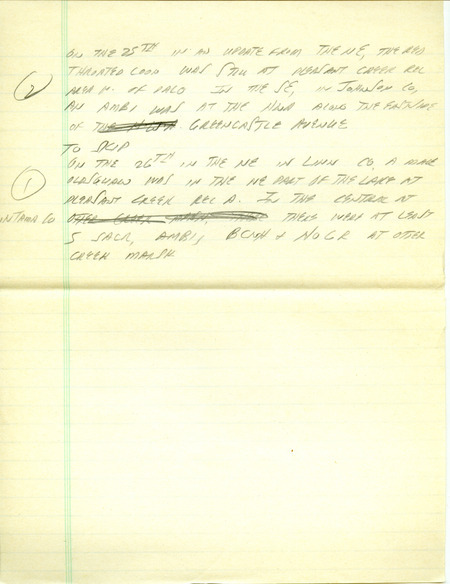 ON THE 25TH IN AN UPDATE FROM THE NE, THE RED
② THROATED LOON WAS STILL AT PLEASANT CREEK REC
AREA N. OF PALO IN THE SE, IN JOHNSON CO,
AN AMBI WAS AT THE POND ALONG THE EAST SIDE
OF GREENCASTLE AVENUE
TO SKIP
ON THE 26TH IN THE NE IN LINN CO. A MALE
① OLDSQUAW WAS IN THE NE PART OF THE LAKE AT
PLEASANT CREEK REC A. IN THE CENTRAL
IN TAMA CO THERE WERE AT LEAST
5 SACR, AMBI, BCNH + NOGR AT OTTER
CREEK MARSH